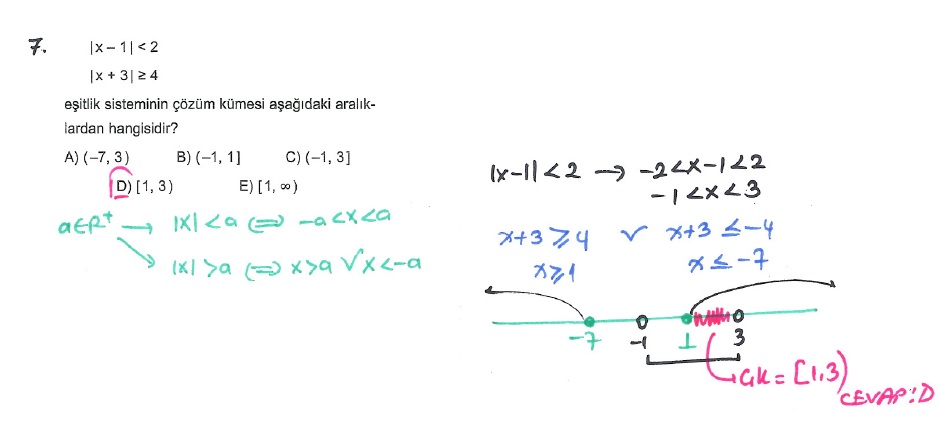 7. |x – 1| < 2
|x + 3| ≥ 4
eşitlik sisteminin çözüm kümesi aşağıdaki aralık-
lardan hangisidir?
A) (–7, 3) B) (–1, 1] C) (–1, 3]
D) [1, 3) E) [1, ∞)
a∈R⁺ → |x| < a ⇔ -a < x < a
|x| > a ⇔ x > a ∨ x < -a
|x-1| < 2 → -2 < x-1 < 2
-1 < x < 3
x+3 ≥ 4 ∨ x+3 ≤ -4
x ≥ 1 x ≤ -7
-7 -1 1 3
ÇK = [1,3)
CEVAP: D